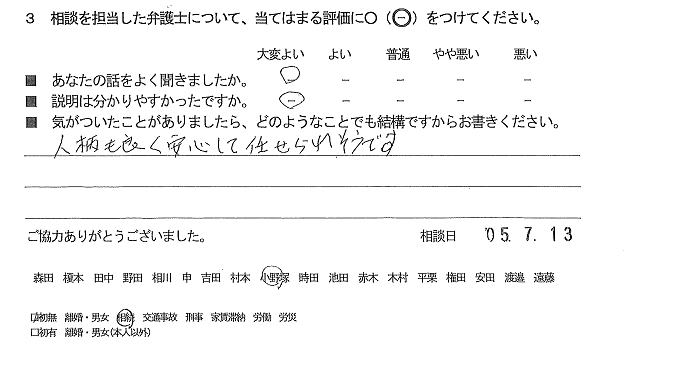 3 相談を担当した弁護士について、当てはまる評価に○（㊀）をつけてください。
大変よい よい 普通 やや悪い 悪い
■ あなたの話をよく聞きましたか。 － － － － －
■ 説明は分かりやすかったですか。 － － － － －
■ 気がついたことがありましたら、どのようなことでも結構ですからお書きください。
人柄も良く安心して任せられそうです
ご協力ありがとうございました。 相談日 '05.7.13
森田 榎本 田中 野田 相川 申 吉田 村本 小野塚 時田 池田 赤木 木村 平栗 権田 安田 渡邉 遠藤
□初無 離婚・男女 相続 交通事故 刑事 家賃滞納 労働 労災
□初有 離婚・男女(本人以外)